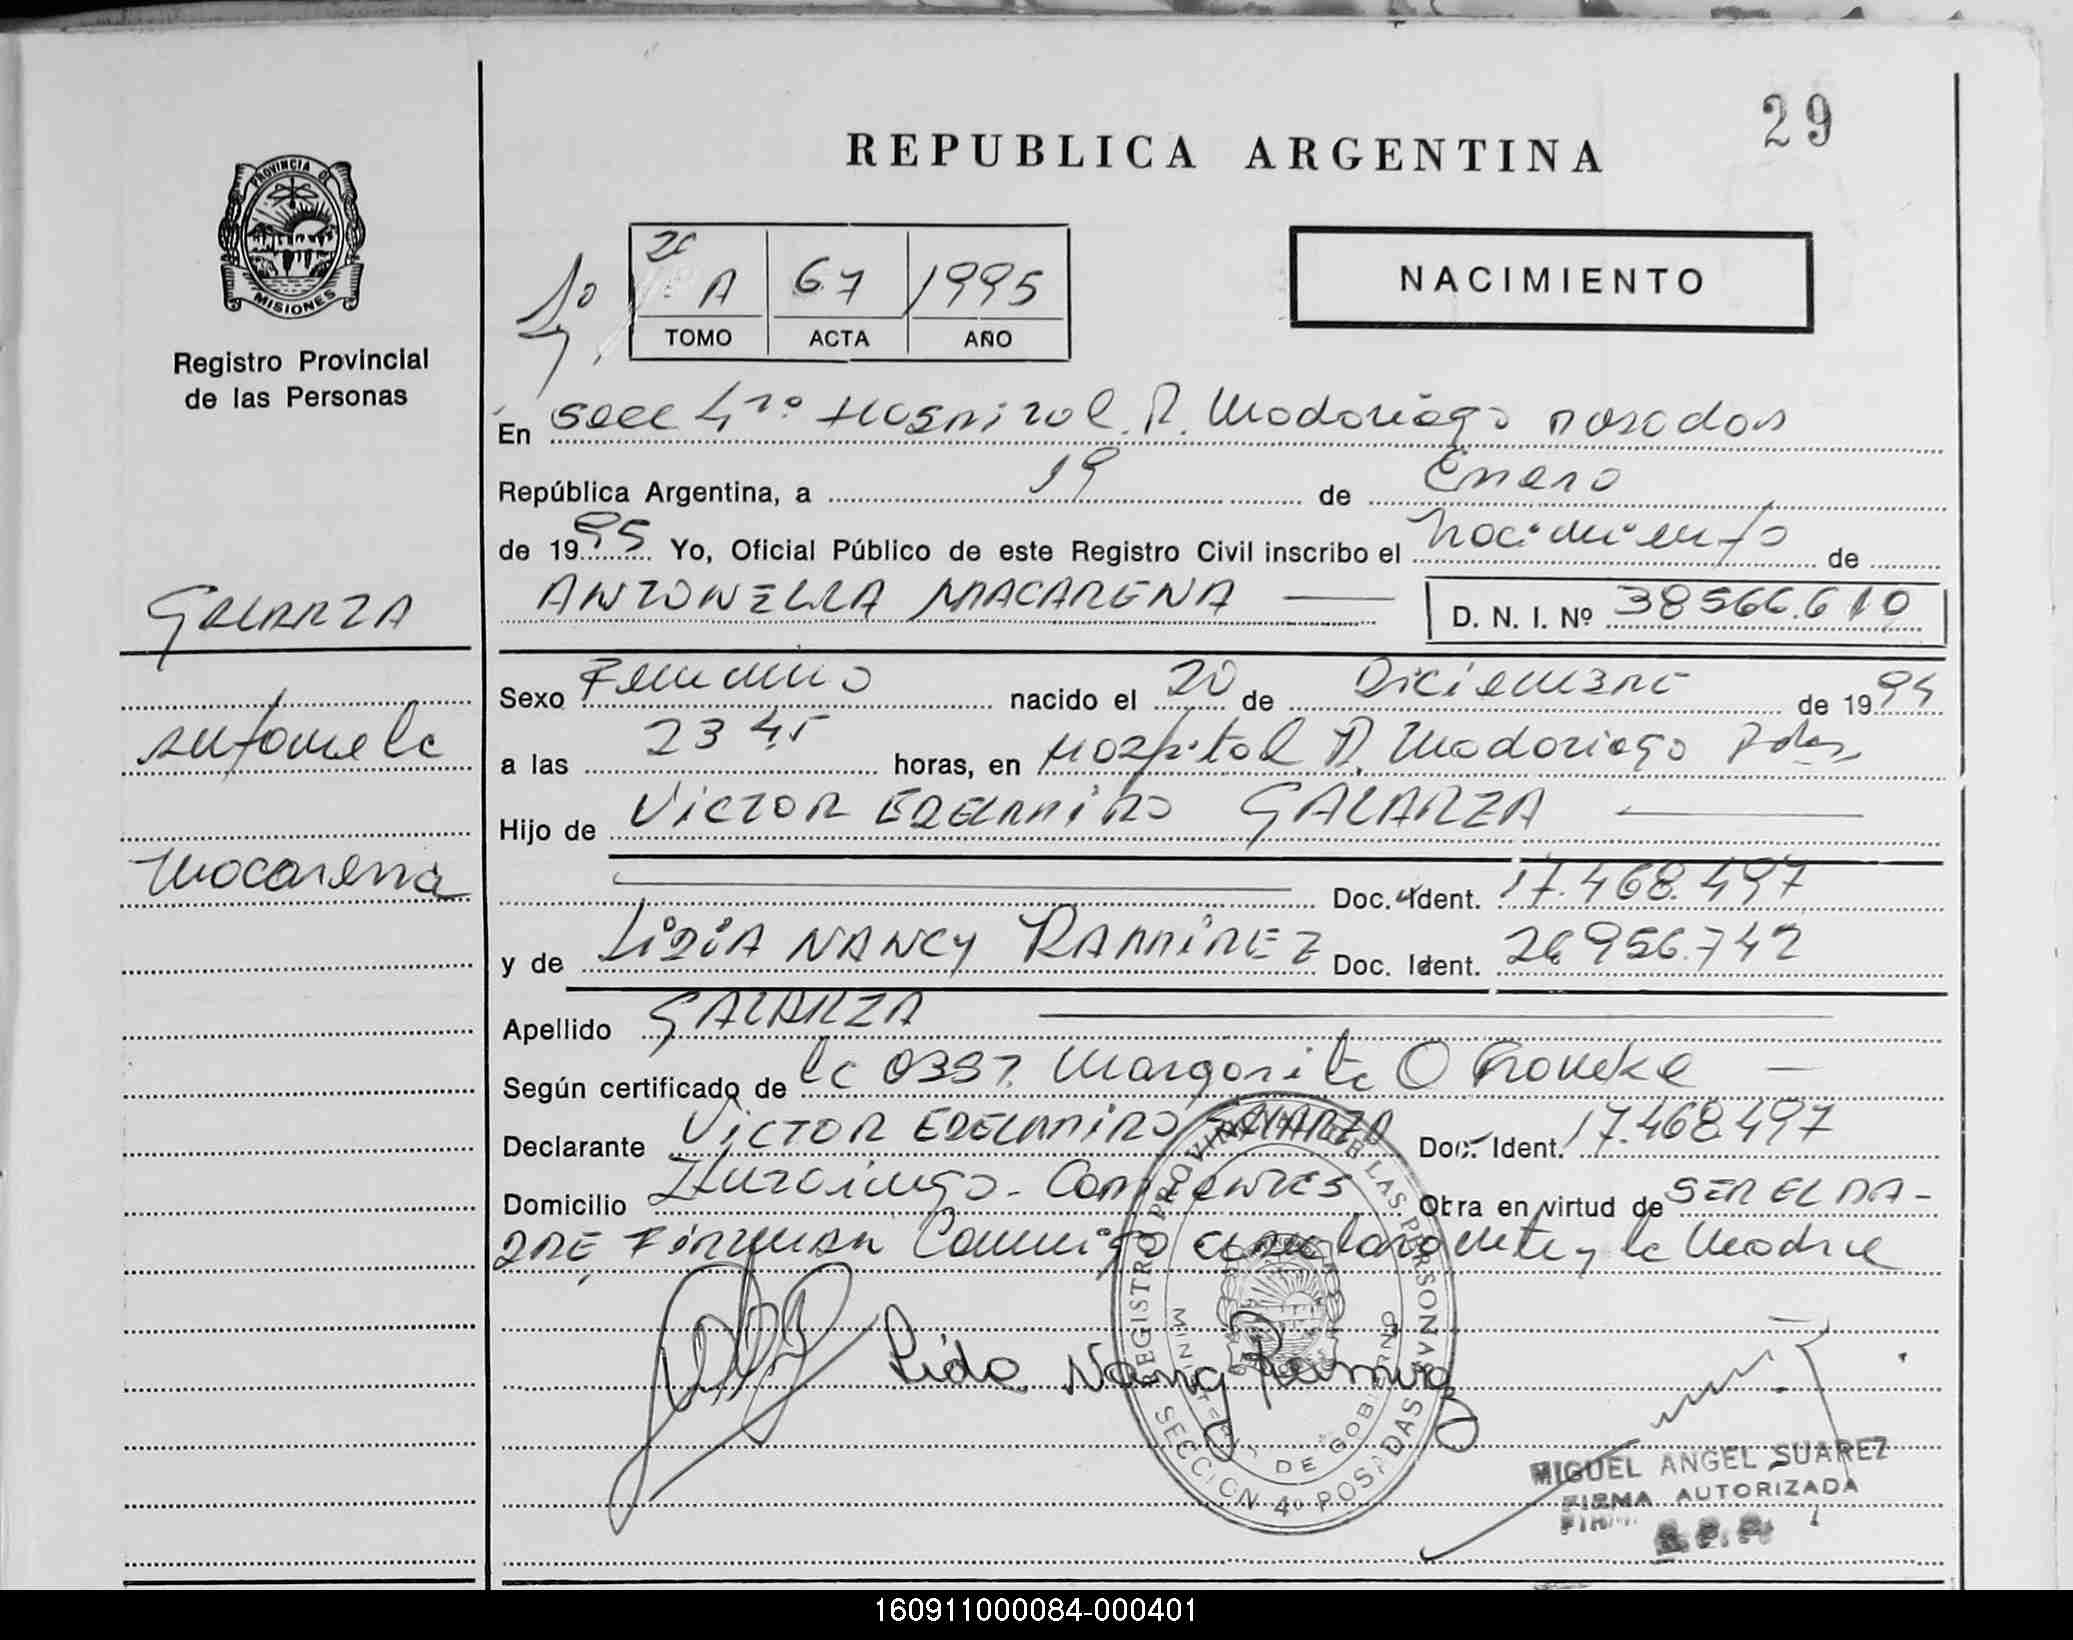 29
REPUBLICA ARGENTINA
PROVINCIA DE
MISIONES
Registro Provincial
de las Personas
NACIMIENTO
A 67 1995
TOMO ACTA AÑO
En Secc 4ta Hospital R. Madariaga Posadas
República Argentina, a 19 de Enero
de 1995 Yo, Oficial Público de este Registro Civil inscribo el Nacimiento de
GALARZA
Antonela
Macarena
ANTONELLA MACARENA D. N. I. Nº 38566.610
Sexo Femenino nacido el 20 de Diciembre de 1994
a las 23 45 horas, en Hospital R. Madariaga Pdas
Hijo de VICTOR EDELMIRO GALARZA
Doc. Ident. 17.468.497
y de LIDIA NANCY RAMIREZ Doc. Ident. 26956.742
Apellido GALARZA
Según certificado de la Obst. Margarita O
Declarante VICTOR EDELMIRO GALARZA Doc. Ident. 17.468.497
Domicilio Ituzaingo - Corrientes Otra en virtud de SER EL PA-
DRE, Firman Conmigo y la Madre
Lida Nancy Ramirez
REGISTRO PROVINCIAL DE LAS PERSONAS
MINISTERIO DE GOBIERNO
SECCION 4º POSADAS
MIGUEL ANGEL SUAREZ
FIRMA AUTORIZADA
160911000084-000401